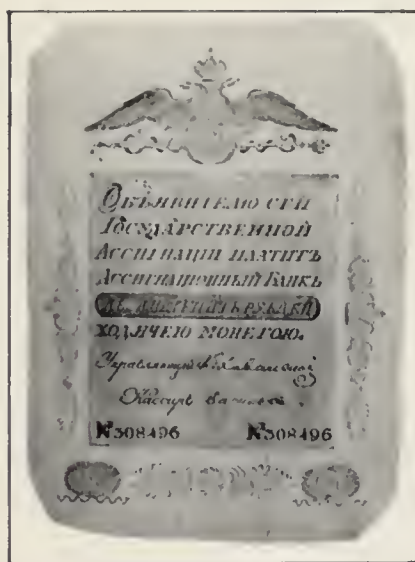 Объявителю сей
Государственной
Ассигнаціи платитъ
Ассигнаціонный Банкъ
рублей
ходячею монетою.
Управляющій
Кассиръ
№308496 №308496